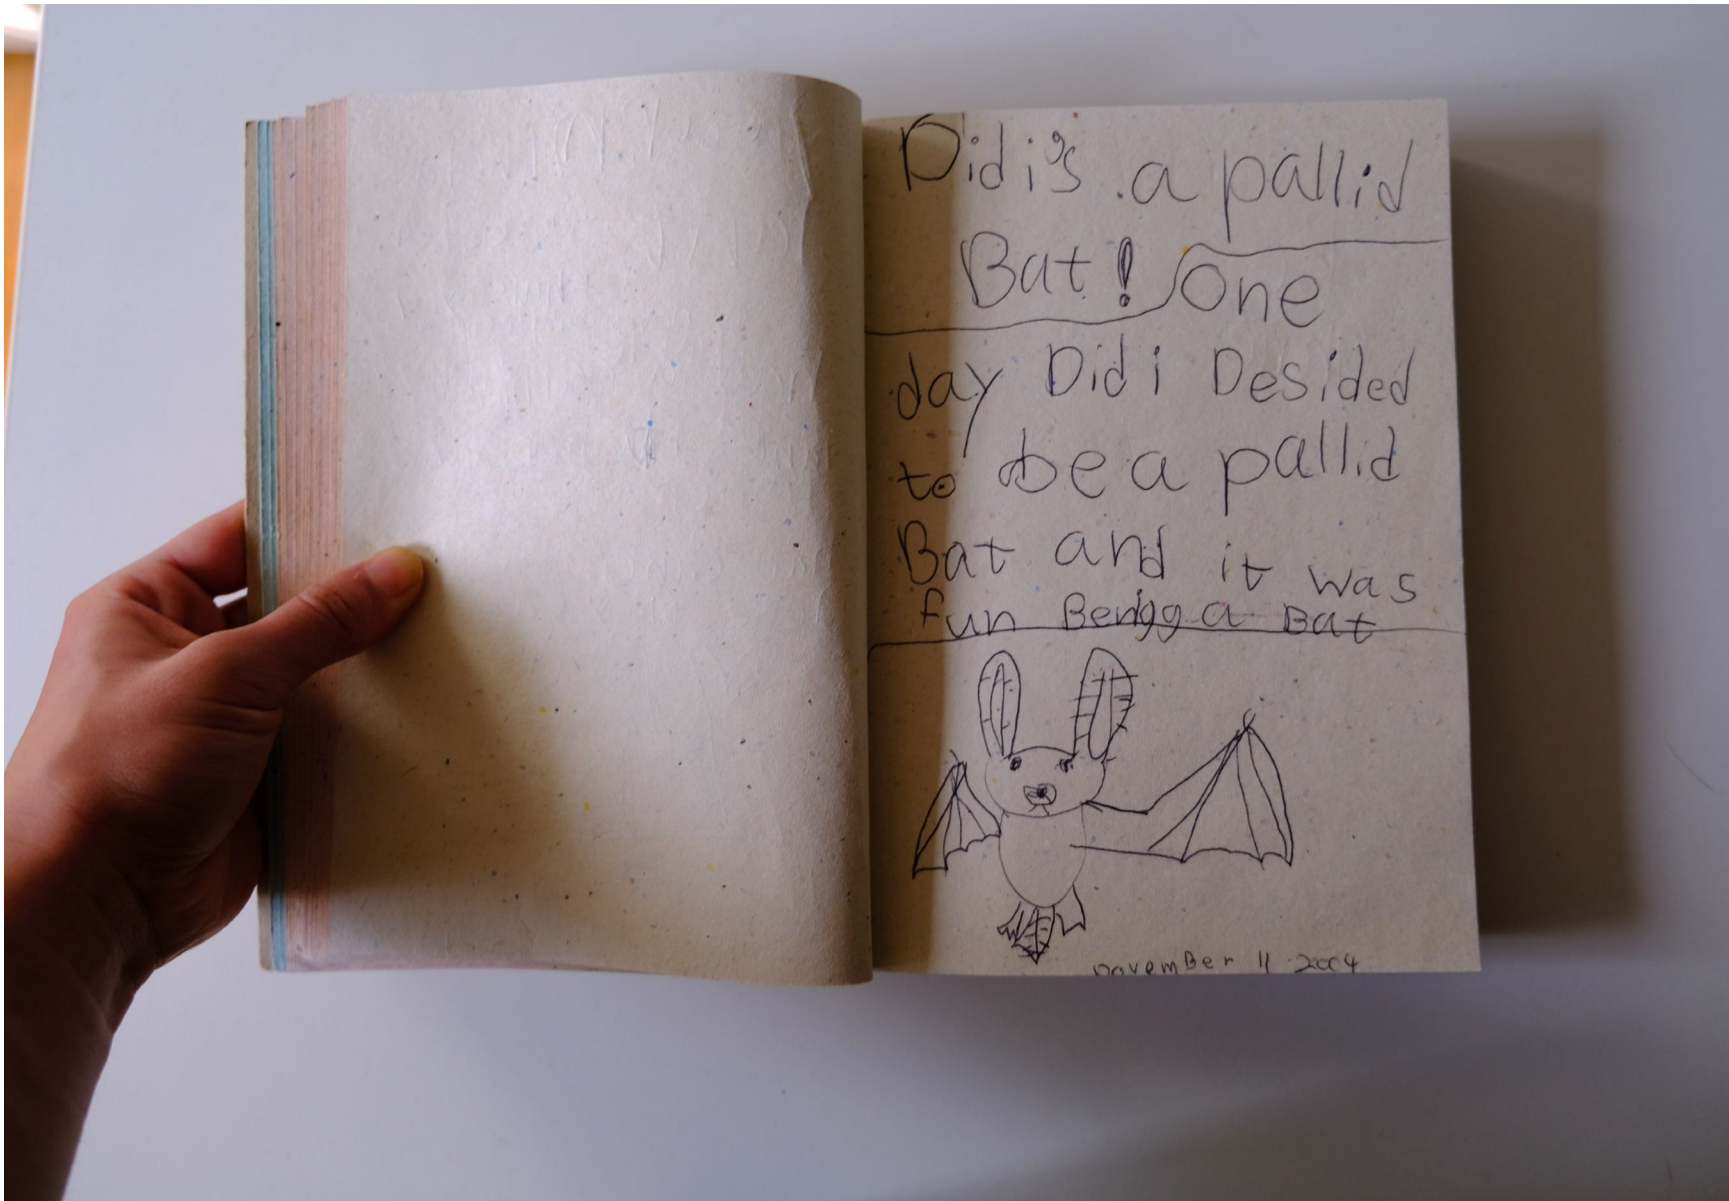 Didi's a pallid
Bat! One
day Didi Desided
to be a pallid
Bat and it was
fun Beingg a Bat
november 11 2004